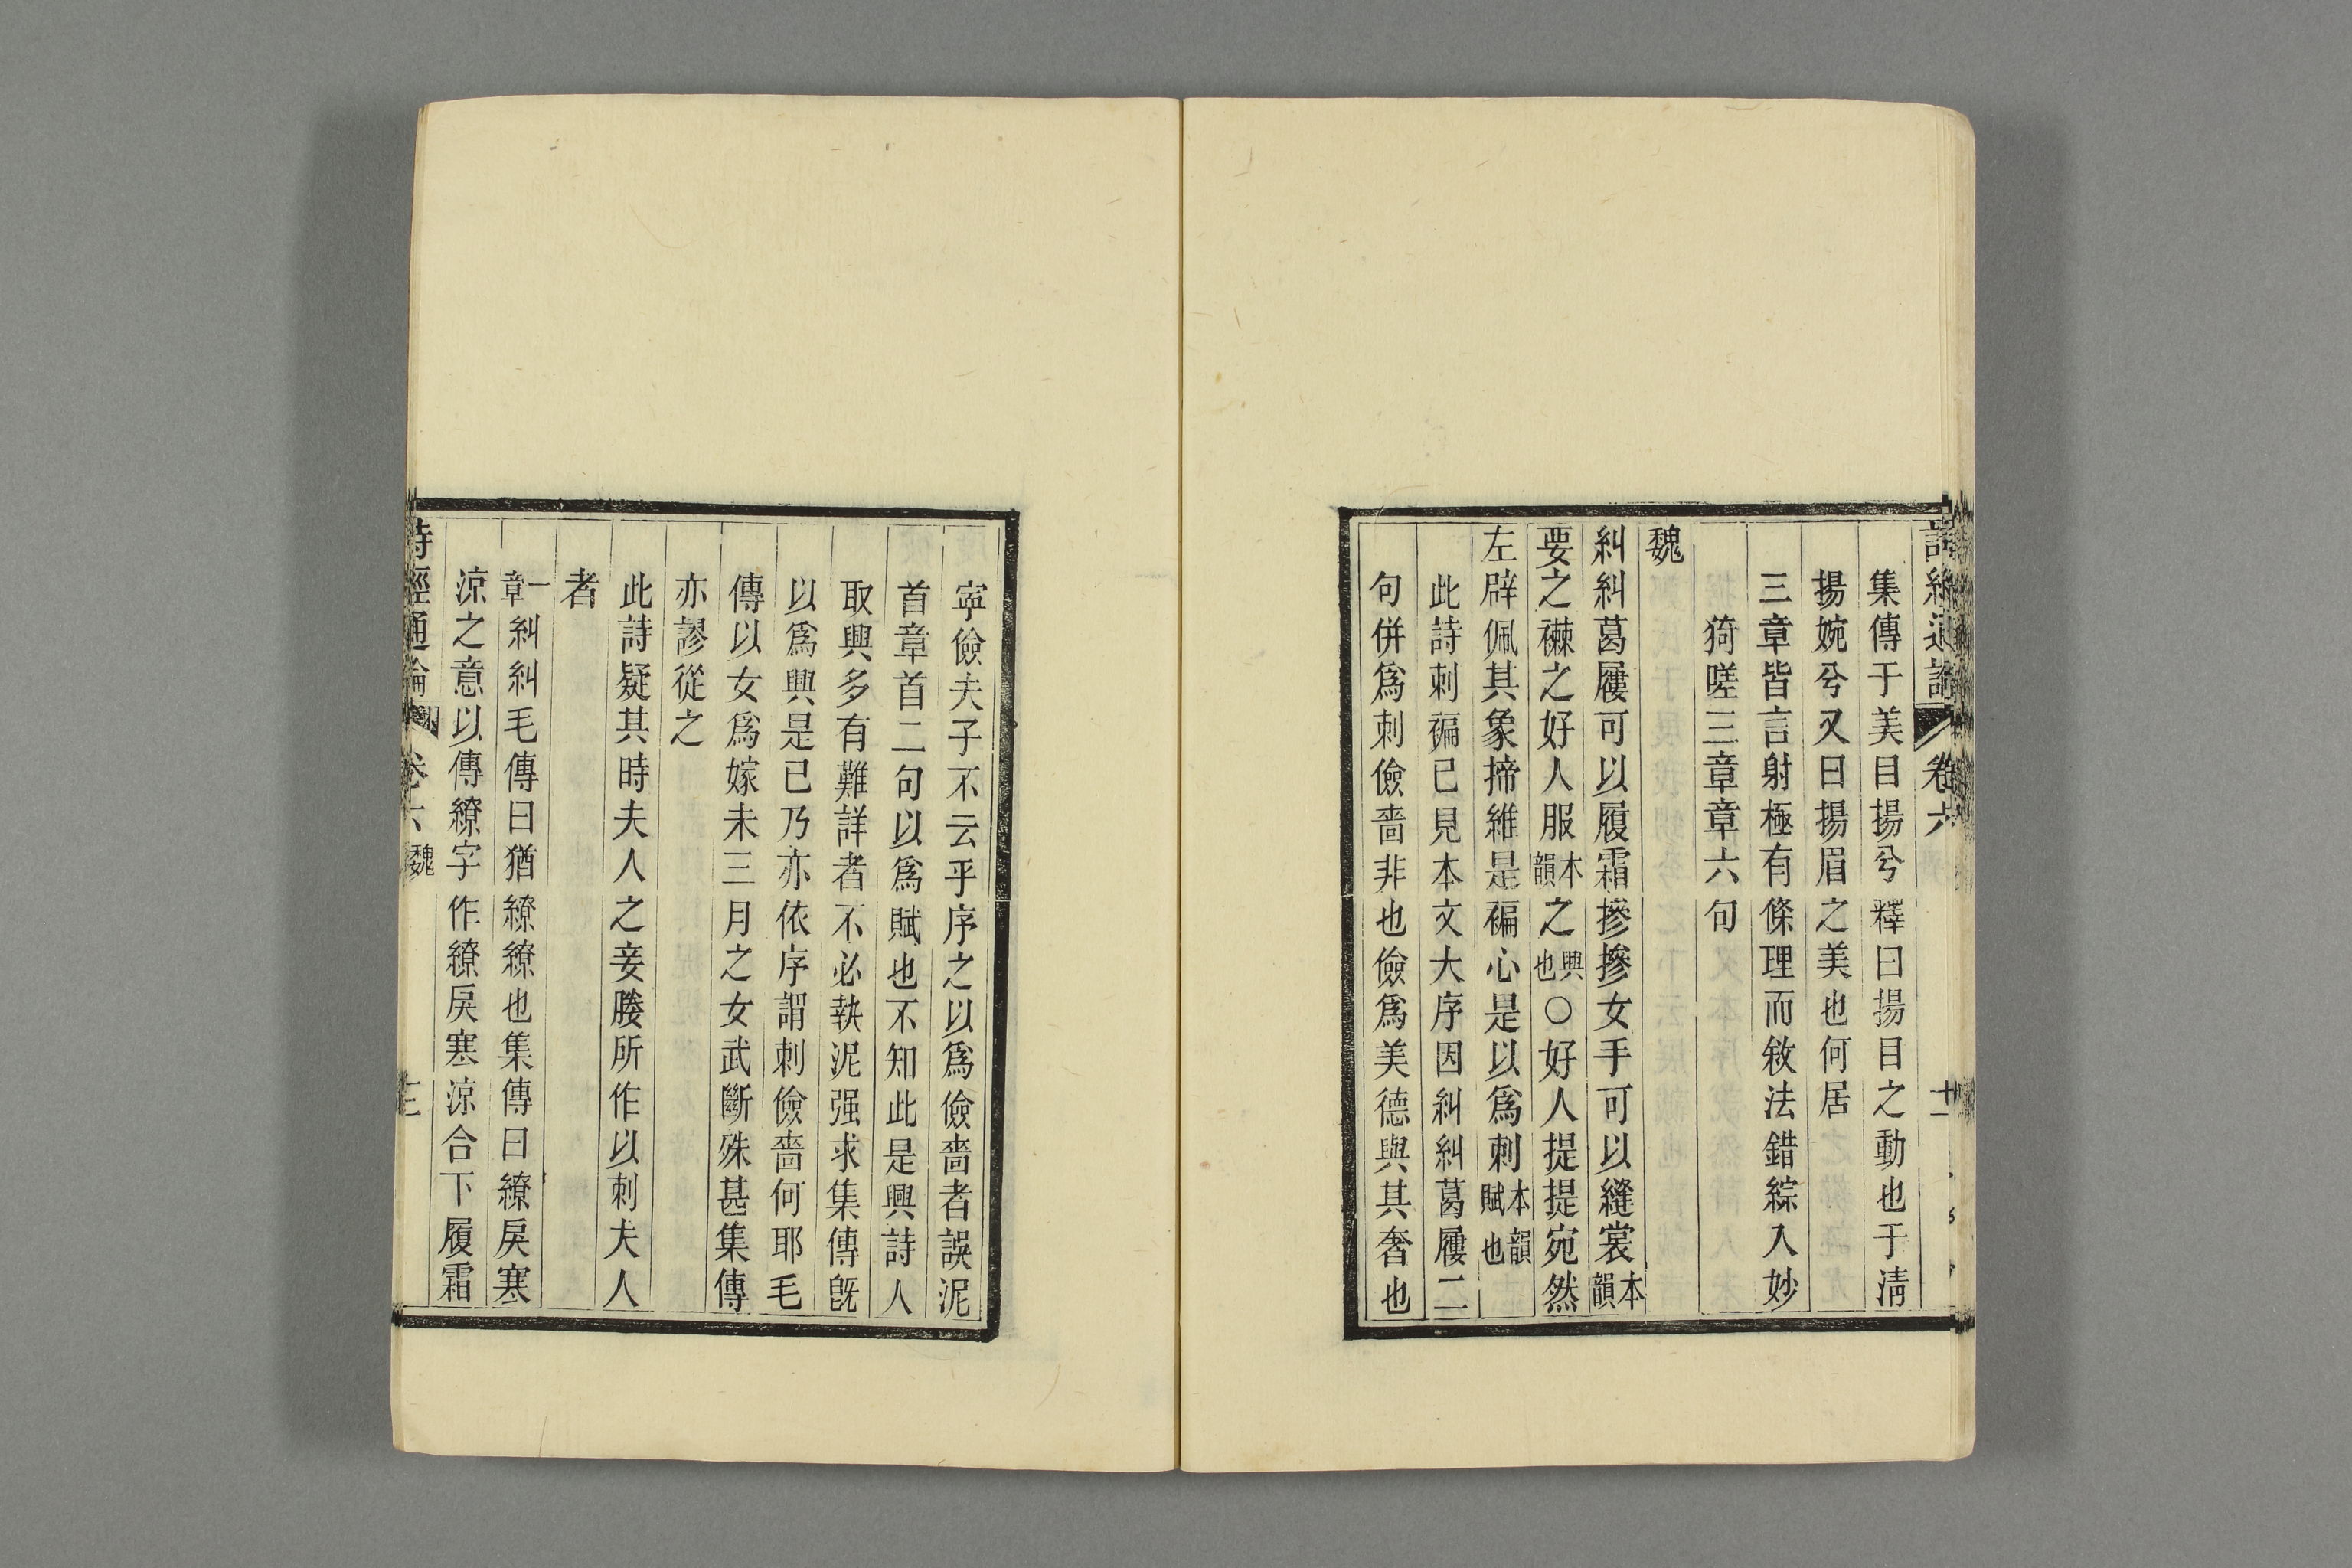 詩經通論 卷六 十二
集傳于美目揚兮釋曰揚目之動也于淸
揚婉兮又曰揚眉之美也何居
三章皆言射極有條理而敘法錯綜入妙
猗嗟三章章六句
魏
糾糾葛屨可以履霜摻摻女手可以縫裳本韻
要之襋之好人服本韻之興也○好人提提宛然
左辟佩其象揥維是褊心是以爲刺本韻賦也
此詩刺褊已見本文大序因糾糾葛屨二
句併爲刺儉嗇非也儉爲美德與其奢也
寧儉夫子不云乎序之以爲儉嗇者誤泥
首章首二句以爲賦也不知此是興詩人
取興多有難詳者不必執泥强求集傳旣
以爲興是已乃亦依序謂刺儉嗇何耶毛
傳以女爲嫁未三月之女武斷殊甚集傳
亦謬從之
此詩疑其時夫人之妾媵所作以刺夫人
者
一章糾糾毛傳曰猶繚繚也集傳曰繚戾寒
涼之意以傳繚字作繚戾寒涼合下履霜
詩經通論 卷六 魏